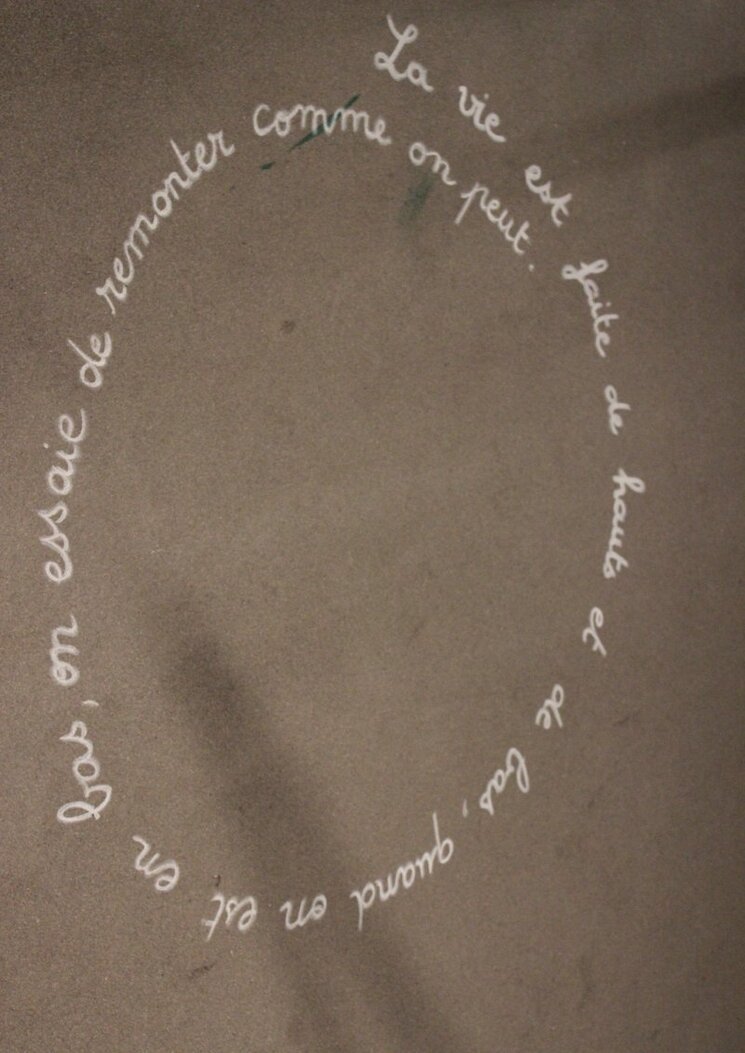 La vie est faite de hauts et de bas, quand on est en bas, on essaie de remonter comme on peut.